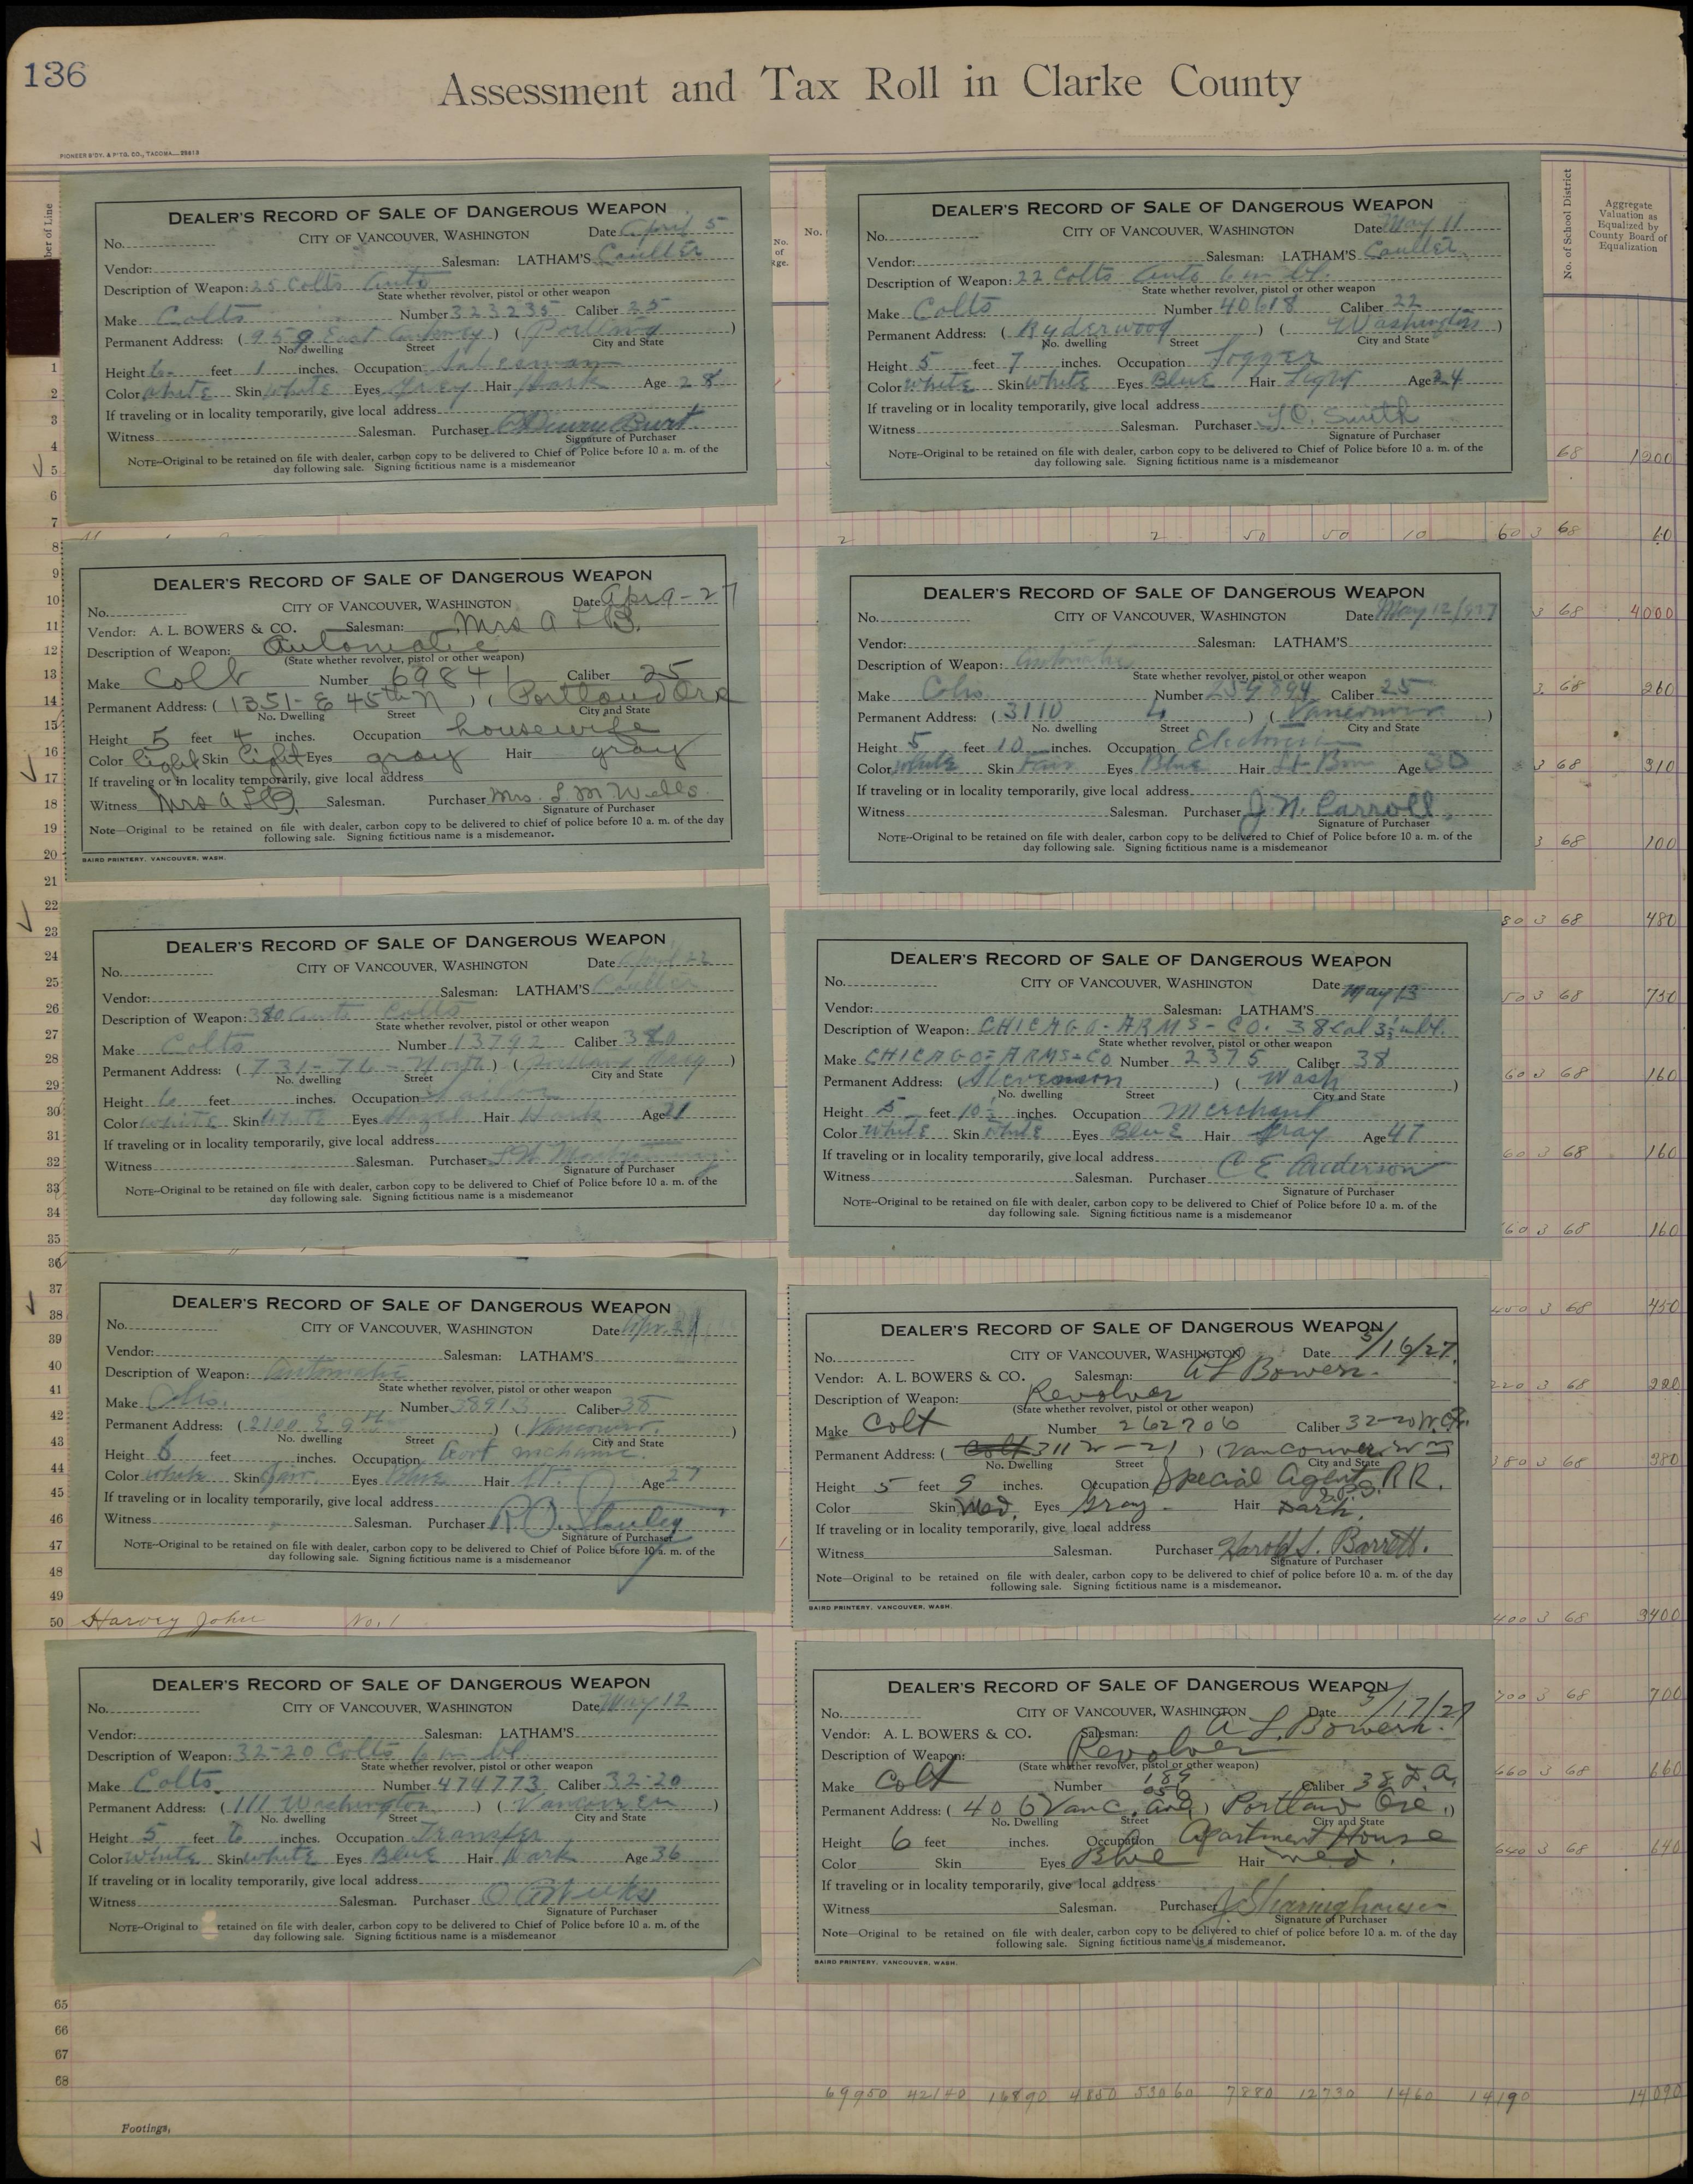 136
Assessment and Tax Roll in Clarke County
PIONEER B'DY. & P'T'G. CO., TACOMA
DEALER'S RECORD OF SALE OF DANGEROUS WEAPON
No. CITY OF VANCOUVER, WASHINGTON Date April 5
Vendor: Salesman: LATHAM'S Caulter
Description of Weapon: 25 Colts Auto
State whether revolver, pistol or other weapon
Make Colts Number 323235 Caliber 25
Permanent Address: ( 959 East Ankeney ) ( Portland )
No. dwelling Street City and State
Height 6 feet 1 inches. Occupation Salesman
Color White Skin White Eyes Grey Hair Dark Age 28
If traveling or in locality temporarily, give local address
Witness Salesman. Purchaser Burt
Signature of Purchaser
NOTE--Original to be retained on file with dealer, carbon copy to be delivered to Chief of Police before 10 a. m. of the
day following sale. Signing fictitious name is a misdemeanor
DEALER'S RECORD OF SALE OF DANGEROUS WEAPON
No. CITY OF VANCOUVER, WASHINGTON Date Apr 9-27
Vendor: A. L. BOWERS & CO. Salesman: Mrs A L B.
Description of Weapon: Automatic
(State whether revolver, pistol or other weapon)
Make Colt Number 69841 Caliber 25
Permanent Address: ( 1351-E 45th N ) ( Portland Ore
No. Dwelling Street City and State
Height 5 feet 4 inches. Occupation housewife
Color light Skin light Eyes gray Hair gray
If traveling or in locality temporarily, give local address
Witness Mrs A L B. Salesman. Purchaser Mrs. L. M Wells
Signature of Purchaser
Note—Original to be retained on file with dealer, carbon copy to be delivered to chief of police before 10 a. m. of the day
following sale. Signing fictitious name is a misdemeanor.
BAIRD PRINTERY, VANCOUVER, WASH.
DEALER'S RECORD OF SALE OF DANGEROUS WEAPON
No. CITY OF VANCOUVER, WASHINGTON Date April 22
Vendor: Salesman: LATHAM'S Caulter
Description of Weapon: 380 Auto Colts
State whether revolver, pistol or other weapon
Make Colts Number 13792 Caliber 380
Permanent Address: ( 731-76-North ) ( Portland )
No. dwelling Street City and State
Height 6 feet inches. Occupation
Color White Skin White Eyes Hazel Hair Dark Age 21
If traveling or in locality temporarily, give local address
Witness Salesman. Purchaser
Signature of Purchaser
NOTE--Original to be retained on file with dealer, carbon copy to be delivered to Chief of Police before 10 a. m. of the
day following sale. Signing fictitious name is a misdemeanor
DEALER'S RECORD OF SALE OF DANGEROUS WEAPON
No. CITY OF VANCOUVER, WASHINGTON Date Apr.
Vendor: Salesman: LATHAM'S
Description of Weapon: Automatic
State whether revolver, pistol or other weapon
Make Colts. Number 38913 Caliber 38
Permanent Address: ( 2100 E 9th ) ( Vancouver. )
No. dwelling Street City and State
Height 6 feet inches. Occupation mechanic.
Color White Skin fair. Eyes Blue Hair lt. Age 27
If traveling or in locality temporarily, give local address
Witness Salesman. Purchaser R. O. Stanley
Signature of Purchaser
NOTE--Original to be retained on file with dealer, carbon copy to be delivered to Chief of Police before 10 a. m. of the
day following sale. Signing fictitious name is a misdemeanor
50 Harvey John No. 1
DEALER'S RECORD OF SALE OF DANGEROUS WEAPON
No. CITY OF VANCOUVER, WASHINGTON Date May 12
Vendor: Salesman: LATHAM'S
Description of Weapon: 32-20 Colts 6 in bl
State whether revolver, pistol or other weapon
Make Colts. Number 474773 Caliber 32-20
Permanent Address: ( 111 Washington ) ( Vancouver )
No. dwelling Street City and State
Height 5 feet 6 inches. Occupation Transfer
Color White Skin White Eyes Blue Hair Dark Age 36
If traveling or in locality temporarily, give local address
Witness Salesman. Purchaser
Signature of Purchaser
NOTE--Original to retained on file with dealer, carbon copy to be delivered to Chief of Police before 10 a. m. of the
day following sale. Signing fictitious name is a misdemeanor
DEALER'S RECORD OF SALE OF DANGEROUS WEAPON
No. CITY OF VANCOUVER, WASHINGTON Date May 11
Vendor: Salesman: LATHAM'S Caulter
Description of Weapon: 22 Colts Auto 6 in bl.
State whether revolver, pistol or other weapon
Make Colts Number 40618 Caliber 22
Permanent Address: ( Ryderwood ) ( Washington )
No. dwelling Street City and State
Height 5 feet 7 inches. Occupation Logger
Color White Skin White Eyes Blue Hair Light Age 24
If traveling or in locality temporarily, give local address
Witness Salesman. Purchaser J. O. Smith
Signature of Purchaser
NOTE--Original to be retained on file with dealer, carbon copy to be delivered to Chief of Police before 10 a. m. of the
day following sale. Signing fictitious name is a misdemeanor
DEALER'S RECORD OF SALE OF DANGEROUS WEAPON
No. CITY OF VANCOUVER, WASHINGTON Date May 12/1927
Vendor: Salesman: LATHAM'S
Description of Weapon: Automatic
State whether revolver, pistol or other weapon
Make Colts Number 259894 Caliber 25
Permanent Address: ( 3110 ) ( Vancouver )
No. dwelling Street City and State
Height 5 feet 10 inches. Occupation Electrician
Color White Skin Fair Eyes Blue Hair Lt Brn Age 30
If traveling or in locality temporarily, give local address
Witness Salesman. Purchaser J. N. Carroll.
Signature of Purchaser
NOTE--Original to be retained on file with dealer, carbon copy to be delivered to Chief of Police before 10 a. m. of the
day following sale. Signing fictitious name is a misdemeanor
DEALER'S RECORD OF SALE OF DANGEROUS WEAPON
No. CITY OF VANCOUVER, WASHINGTON Date May 13
Vendor: Salesman: LATHAM'S
Description of Weapon: CHICAGO-ARMS-CO. 38 Cal 3½ in bl.
State whether revolver, pistol or other weapon
Make CHICAGO-ARMS-CO Number 2375 Caliber 38
Permanent Address: ( Stevenson ) ( Wash )
No. dwelling Street City and State
Height 5 feet 10½ inches. Occupation Merchant
Color White Skin White Eyes Blue Hair Gray Age 47
If traveling or in locality temporarily, give local address
Witness Salesman. Purchaser C E Anderson
Signature of Purchaser
NOTE--Original to be retained on file with dealer, carbon copy to be delivered to Chief of Police before 10 a. m. of the
day following sale. Signing fictitious name is a misdemeanor
DEALER'S RECORD OF SALE OF DANGEROUS WEAPON
No. CITY OF VANCOUVER, WASHINGTON Date 5/16/27.
Vendor: A. L. BOWERS & CO. Salesman: A L Bowers.
Description of Weapon: Revolver
(State whether revolver, pistol or other weapon)
Make Colt Number 262706 Caliber 32-20 W.C.F.
Permanent Address: ( Colt 311 W-21 ) ( Vancouver Wn )
No. Dwelling Street City and State
Height 5 feet 9 inches. Occupation Special Agent R.R.
Color Skin Med. Eyes Gray Hair Dark.
If traveling or in locality temporarily, give local address
Witness Salesman. Purchaser Harold S. Barrett.
Signature of Purchaser
Note—Original to be retained on file with dealer, carbon copy to be delivered to chief of police before 10 a. m. of the day
following sale. Signing fictitious name is a misdemeanor.
BAIRD PRINTERY, VANCOUVER, WASH.
DEALER'S RECORD OF SALE OF DANGEROUS WEAPON
No. CITY OF VANCOUVER, WASHINGTON Date 5/17/27
Vendor: A. L. BOWERS & CO. Salesman: A L. Bowers.
Description of Weapon: Revolver
(State whether revolver, pistol or other weapon)
Make Colt Number 189 051 Caliber 38 D.A.
Permanent Address: ( 406 Vanc. Ave ) Portland Ore. )
No. Dwelling Street City and State
Height 6 feet inches. Occupation Apartment House
Color Skin Eyes Blue Hair Med.
If traveling or in locality temporarily, give local address
Witness Salesman. Purchaser
Signature of Purchaser
Note—Original to be retained on file with dealer, carbon copy to be delivered to chief of police before 10 a. m. of the day
following sale. Signing fictitious name is a misdemeanor.
BAIRD PRINTERY, VANCOUVER, WASH.
No. of School District
Aggregate
Valuation as
Equalized by
County Board of
Equalization
68 1200
2 2 50 50 10 60 3 68 60
3 68 4000
3 68 260
3 68 310
3 68 100
3 68 480
3 68 750
60 3 68 160
60 3 68 160
60 3 68 160
450 3 68 450
220 3 68 220
380 3 68 380
400 3 68 3400
700 3 68 700
660 3 68 660
640 3 68 640
65
66
67
68
69950 42140 16890 4850 53060 7880 12730 1460 14190 14090
Footings,